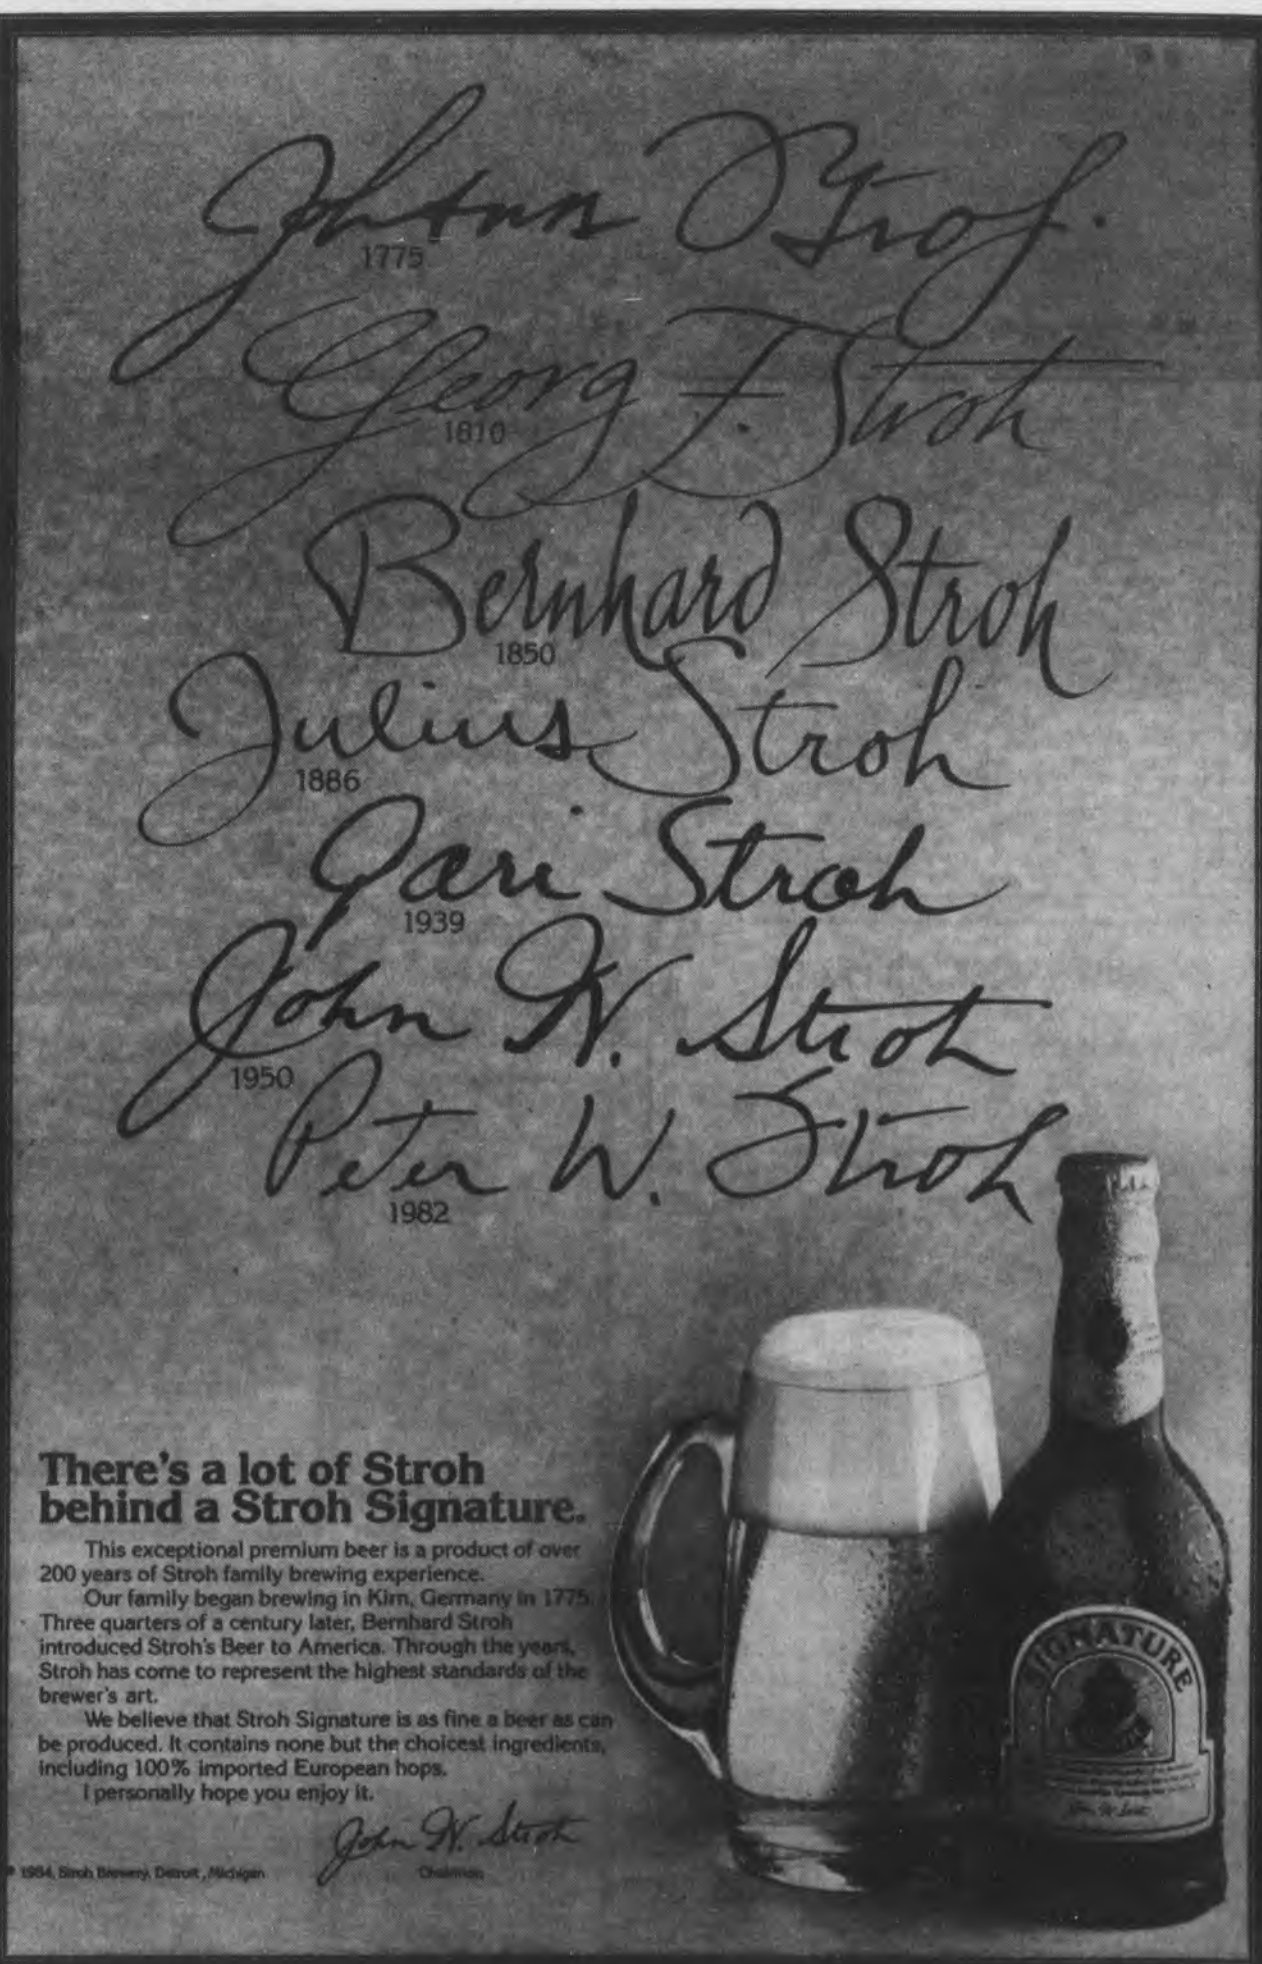 Johann Stroh.
1775
Georg F. Stroh
1810
Bernhard Stroh
1850
Julius Stroh
1886
Gari Stroh
1939
John W. Stroh
1950
Peter W. Stroh
1982
There's a lot of Stroh
behind a Stroh Signature.
This exceptional premium beer is a product of over
200 years of Stroh family brewing experience.
Our family began brewing in Kirn, Germany in 1775.
Three quarters of a century later, Bernhard Stroh
introduced Stroh's Beer to America. Through the years,
Stroh has come to represent the highest standards of the
brewer's art.
We believe that Stroh Signature is as fine a beer as can
be produced. It contains none but the choicest ingredients,
including 100% imported European hops.
I personally hope you enjoy it.
John W. Stroh
Chairman
© 1984, Stroh Brewery, Detroit, Michigan
SIGNATURE
John W. Stroh